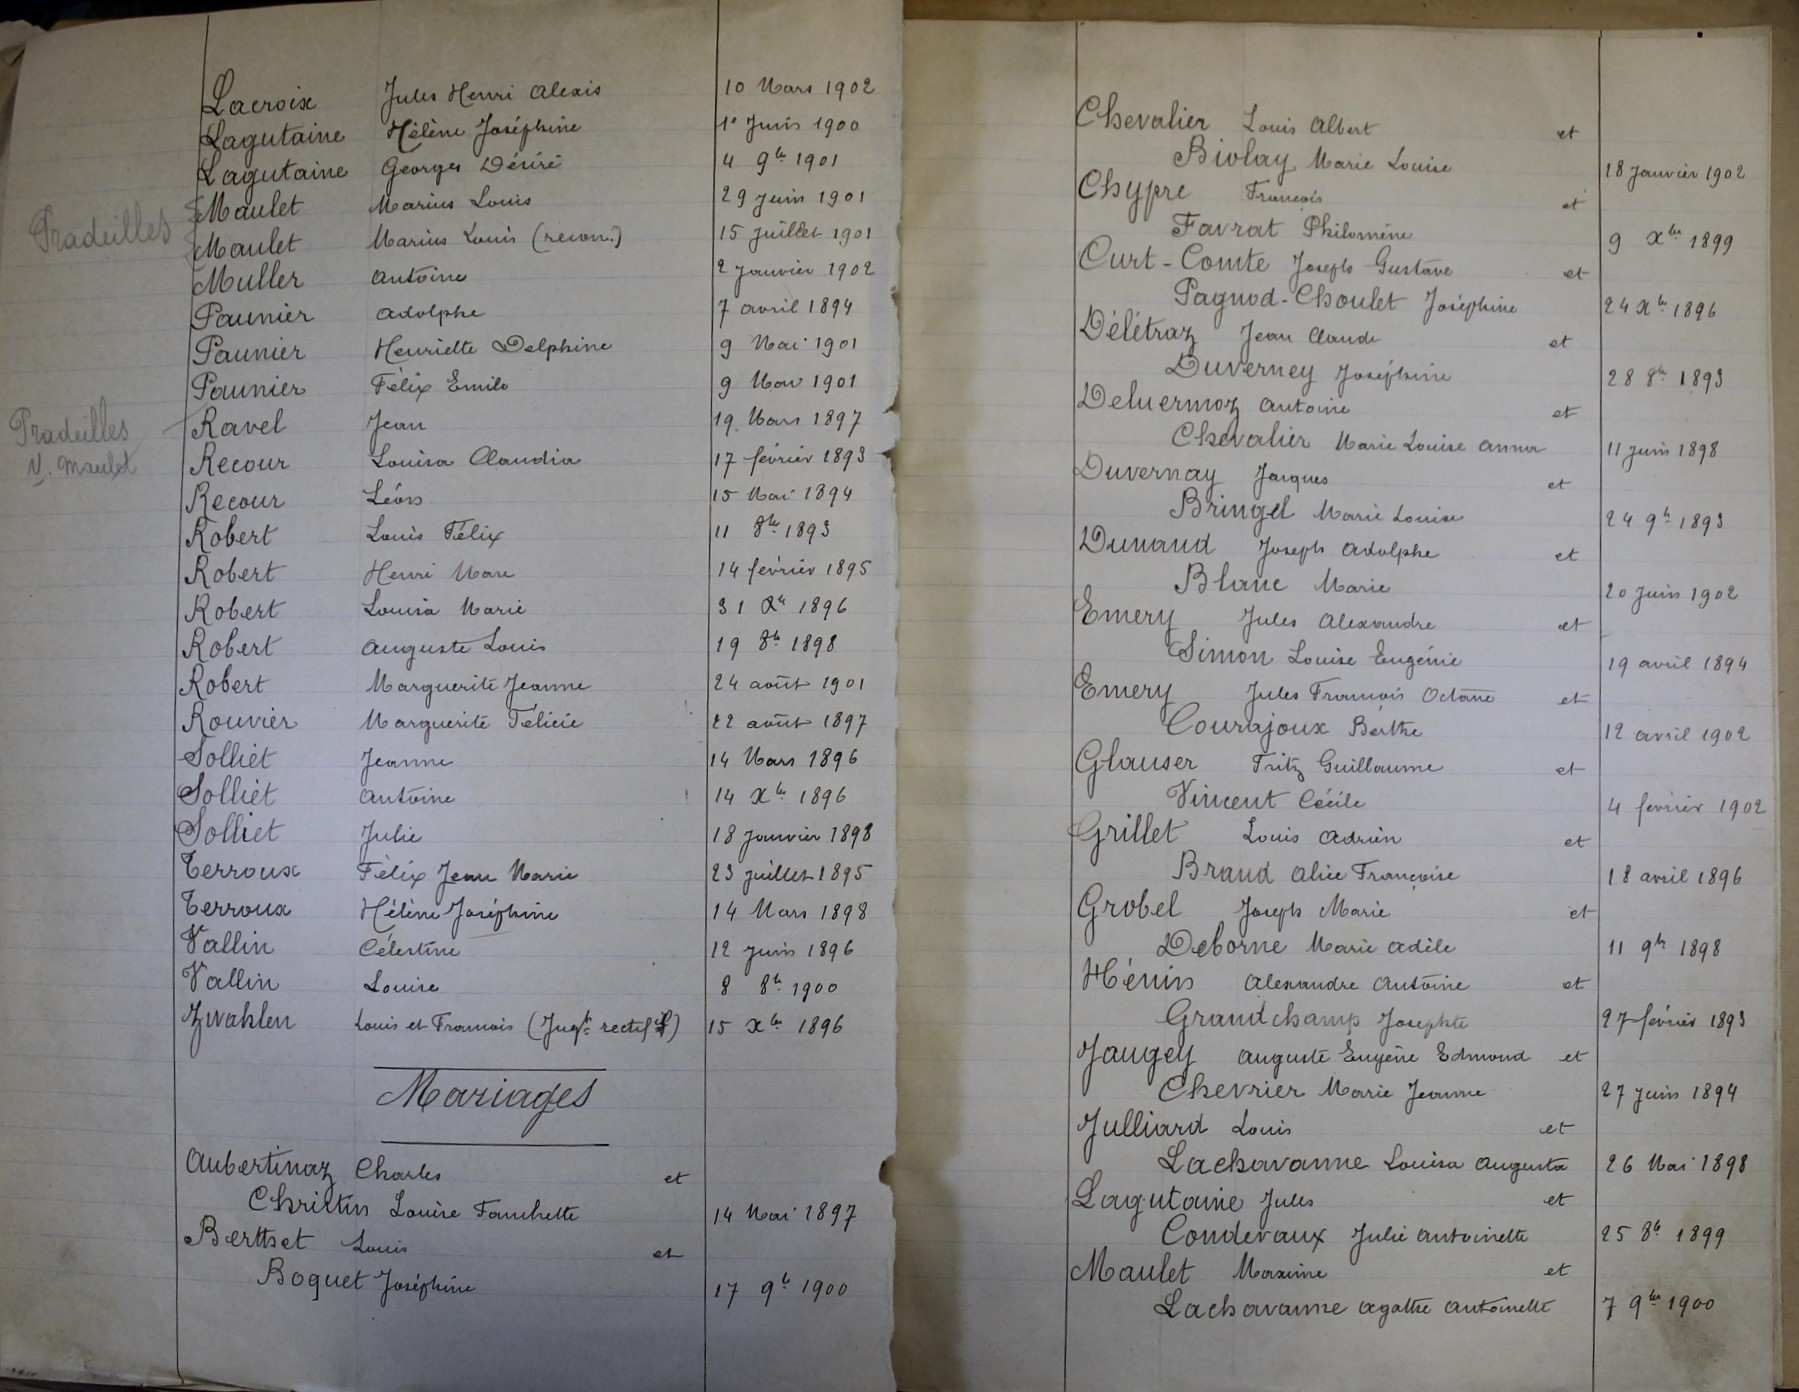 Lacroix Jules Henri Alexis 10 Mars 1902
Lagutaine Hélène Joséphine 1er Juin 1900
Lagutaine Georges Désiré 4 9bre 1901
Maulet Marius Louis 29 Juin 1901
Pradeilles
Maulet Marius Louis (reconn.) 15 Juillet 1901
Muller Antoine 2 Janvier 1902
Paunier Adolphe 7 avril 1894
Paunier Henriette Delphine 9 Mai 1901
Paunier Félix Emile 9 Mai 1901
Pradeilles
Ravel Jean 19 Mars 1897
V. Maulet
Recour Louisa Claudia 17 février 1893
Recour Léon 15 Mai 1894
Robert Louis Félix 11 8bre 1893
Robert Henri Marc 14 février 1895
Robert Louisa Marie 31 Xbre 1896
Robert Auguste Louis 19 8bre 1898
Robert Marguerite Jeanne 24 août 1901
Rouvier Marguerite Félicie 22 août 1897
Solliet Jeanne 14 Mars 1896
Solliet Antoine 14 Xbre 1896
Solliet Julie 18 Janvier 1898
Terroux Félix Jean Marie 23 juillet 1895
Terroux Hélène Joséphine 14 Mars 1898
Vallin Célestine 12 Juin 1896
Vallin Louise 8 8bre 1900
Zwahlen Louis et François (Jugt rectif) 15 Xbre 1896
Mariages
Aubertinaz Charles et
Christin Louise Fanchette 14 Mai 1897
Berthet Louis et
Boquet Joséphine 17 9bre 1900
Chevalier Louis Albert et
Biolay Marie Louise 18 Janvier 1902
Chypre François et
Favrat Philomène 9 Xbre 1899
Curt-Comte Joseph Gustave et
Pagnod-Choulet Joséphine 24 Xbre 1896
Délétraz Jean Claude et
Duverney Joséphine 28 8bre 1893
Deluermoz Antoine et
Chevalier Marie Louise Anna 11 Juin 1898
Duvernay Jacques et
Bringel Marie Louise 24 9bre 1893
Dunand Joseph Adolphe et
Blanc Marie 20 Juin 1902
Emery Jules Alexandre et
Simon Louise Eugénie 19 avril 1894
Emery Jules François Octave et
Courajoux Berthe 12 avril 1902
Glauser Fritz Guillaume et
Vincent Cécile 4 février 1902
Grillet Louis Adrien et
Brand Alice Françoise 18 avril 1896
Grobel Joseph Marie et
Deborne Marie Adèle 11 9bre 1898
Hénin Alexandre Antoine et
Grandchamp Josephte 27 février 1893
Jaugey Auguste Eugène Edmond et
Chevrier Marie Jeanne 27 Juin 1894
Julliard Louis et
Lachavanne Louisa Augusta 26 Mai 1898
Lagutaine Jules et
Condevaux Julie Antoinette 25 8bre 1899
Maulet Maxime et
Lachavanne Agathe Antoinette 7 9bre 1900